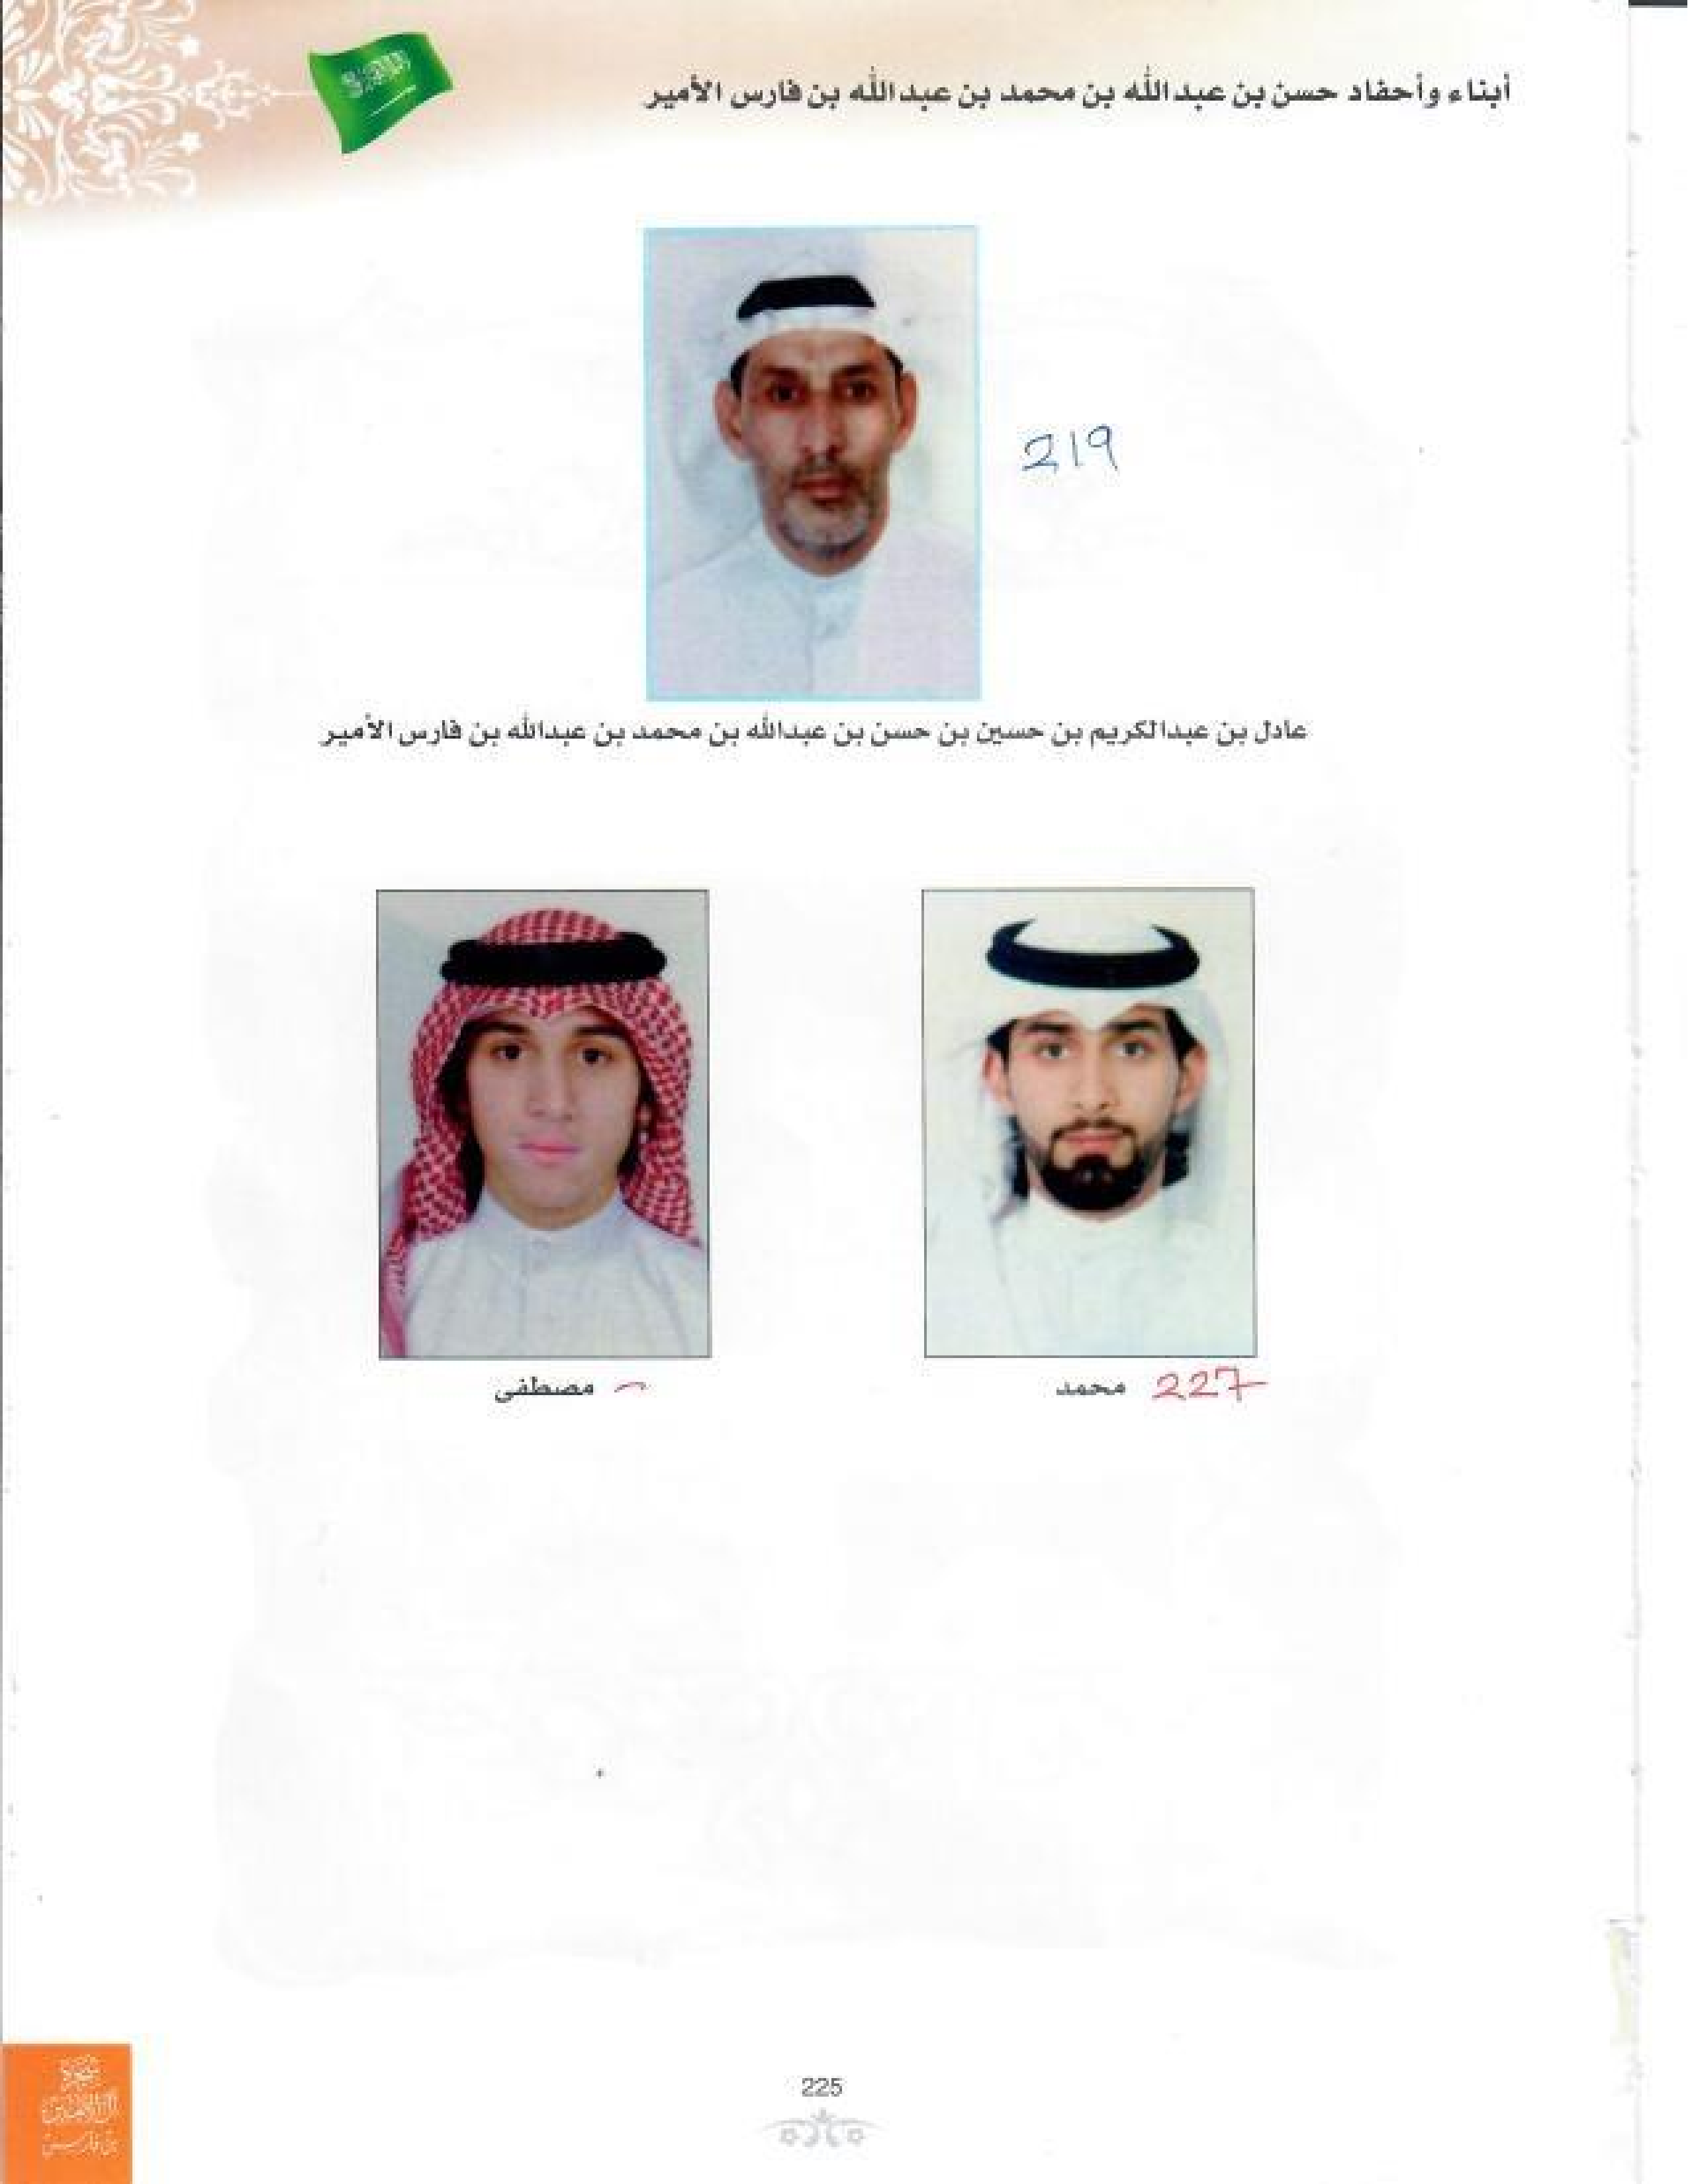 أبناء وأحفاد حسن بن عبدالله بن محمد بن عبدالله بن فارس الأمير
219
عادل بن عبدالكريم بن حسين بن حسن بن عبدالله بن محمد بن عبدالله بن فارس الأمير
227 محمد
مصطفى
225
شجرة
بن فارس